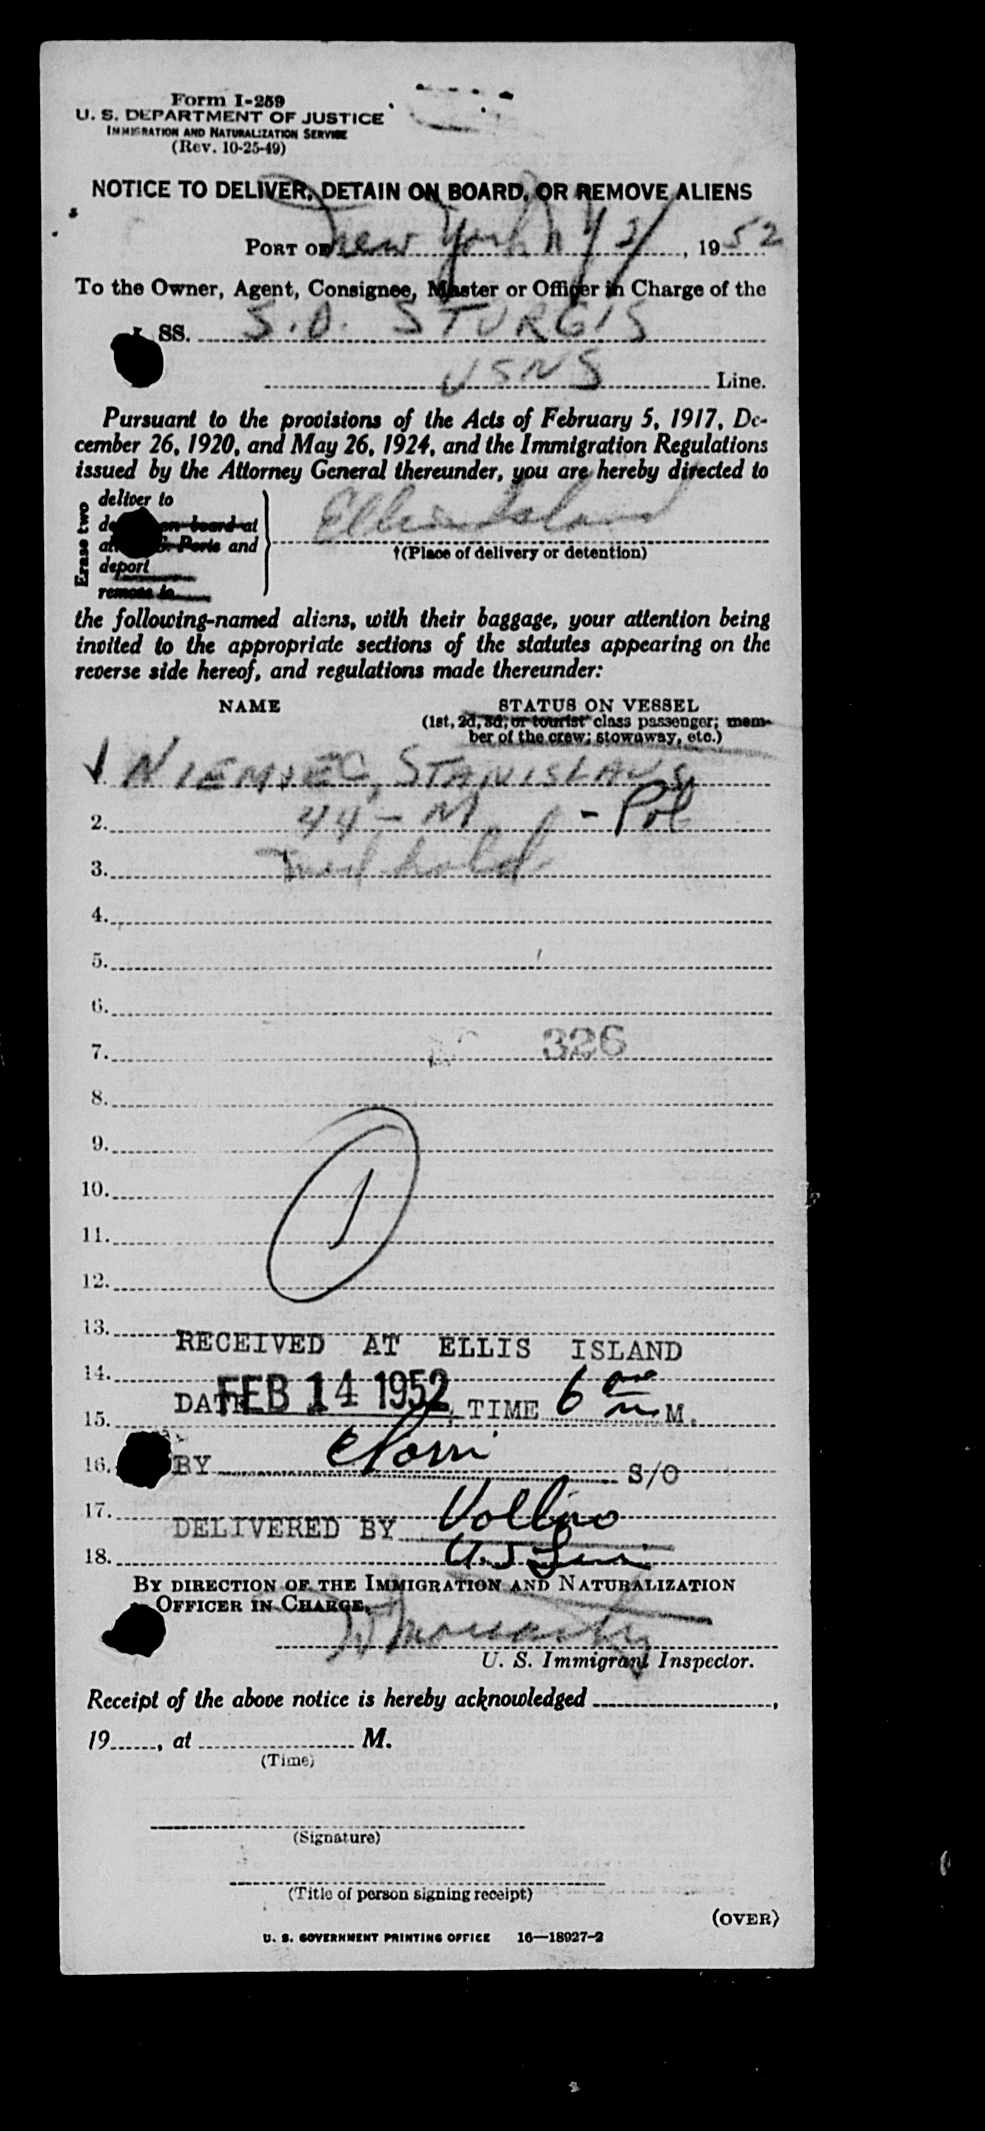 Form I-259
U. S. DEPARTMENT OF JUSTICE
IMMIGRATION AND NATURALIZATION SERVICE
(Rev. 10-25-49)
NOTICE TO DELIVER, DETAIN ON BOARD, OR REMOVE ALIENS
PORT OF New York N Y , 1952
To the Owner, Agent, Consignee, Master or Officer in Charge of the
SS. S.D. STURGIS
USNS Line.
Pursuant to the provisions of the Acts of February 5, 1917, De-
cember 26, 1920, and May 26, 1924, and the Immigration Regulations
issued by the Attorney General thereunder, you are hereby directed to
Erase two
deliver to
on board at
Ports and
deport
remove to
Ellis Island
†(Place of delivery or detention)
the following-named aliens, with their baggage, your attention being
invited to the appropriate sections of the statutes appearing on the
reverse side hereof, and regulations made thereunder:
NAME STATUS ON VESSEL
(1st, 2d, 3d, or tourist class passenger; mem-
ber of the crew; stowaway, etc.)
1 NIEMIEC, STANISLAUS
2. 44 - M - Pol
3. Med hold
4.
5.
6.
7. 326
8.
9.
10.
1
11.
12.
13.
RECEIVED AT ELLIS ISLAND
14.
DATE FEB 14 1952 TIME 6 M.
15.
16. BY S/O
17.
DELIVERED BY Vollino
18.
BY DIRECTION OF THE IMMIGRATION AND NATURALIZATION
OFFICER IN CHARGE,
U. S. Immigrant Inspector.
Receipt of the above notice is hereby acknowledged ,
19 , at M.
(Time)
(Signature)
(Title of person signing receipt)
(OVER)
U. S. GOVERNMENT PRINTING OFFICE 16—18927-2